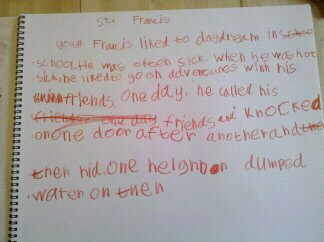 St. Francis
young Francis liked to daydream in school
school. He was often sick. When he was not
sick, he liked to go on adventures with his
friends. One day, he called his
friends one day friends and knocked
on one door after another and the
then hid. One neighbor dumped
water on then